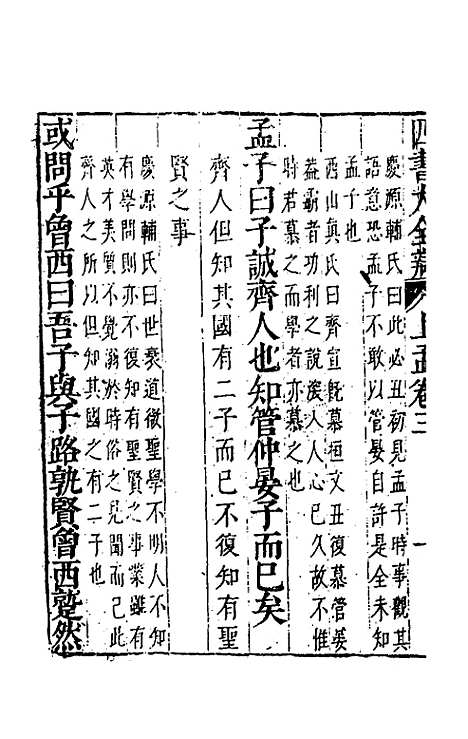 四書大全辯 上孟卷三 一
慶源輔氏曰此必丑初見孟子時事觀其
語意恐孟子不敢以管晏自許是全未知
孟子也
西山真氏曰齊宣旣慕桓文丑復慕管晏
葢霸者功利之說浸人人心已久故不惟
時君慕之而學者亦慕之也
孟子曰子誠齊人也知管仲晏子而已矣
齊人但知其國有二子而已不復知有聖
賢之事
慶源輔氏曰世衰道微聖學不明人不知
有學問則亦不復知有聖賢之事業雖有
英才美質不覺溺於時俗之見聞而已此
齊人之所以但知其國之有二子也
或問乎曾西曰吾子與子路孰賢曾西蹵然